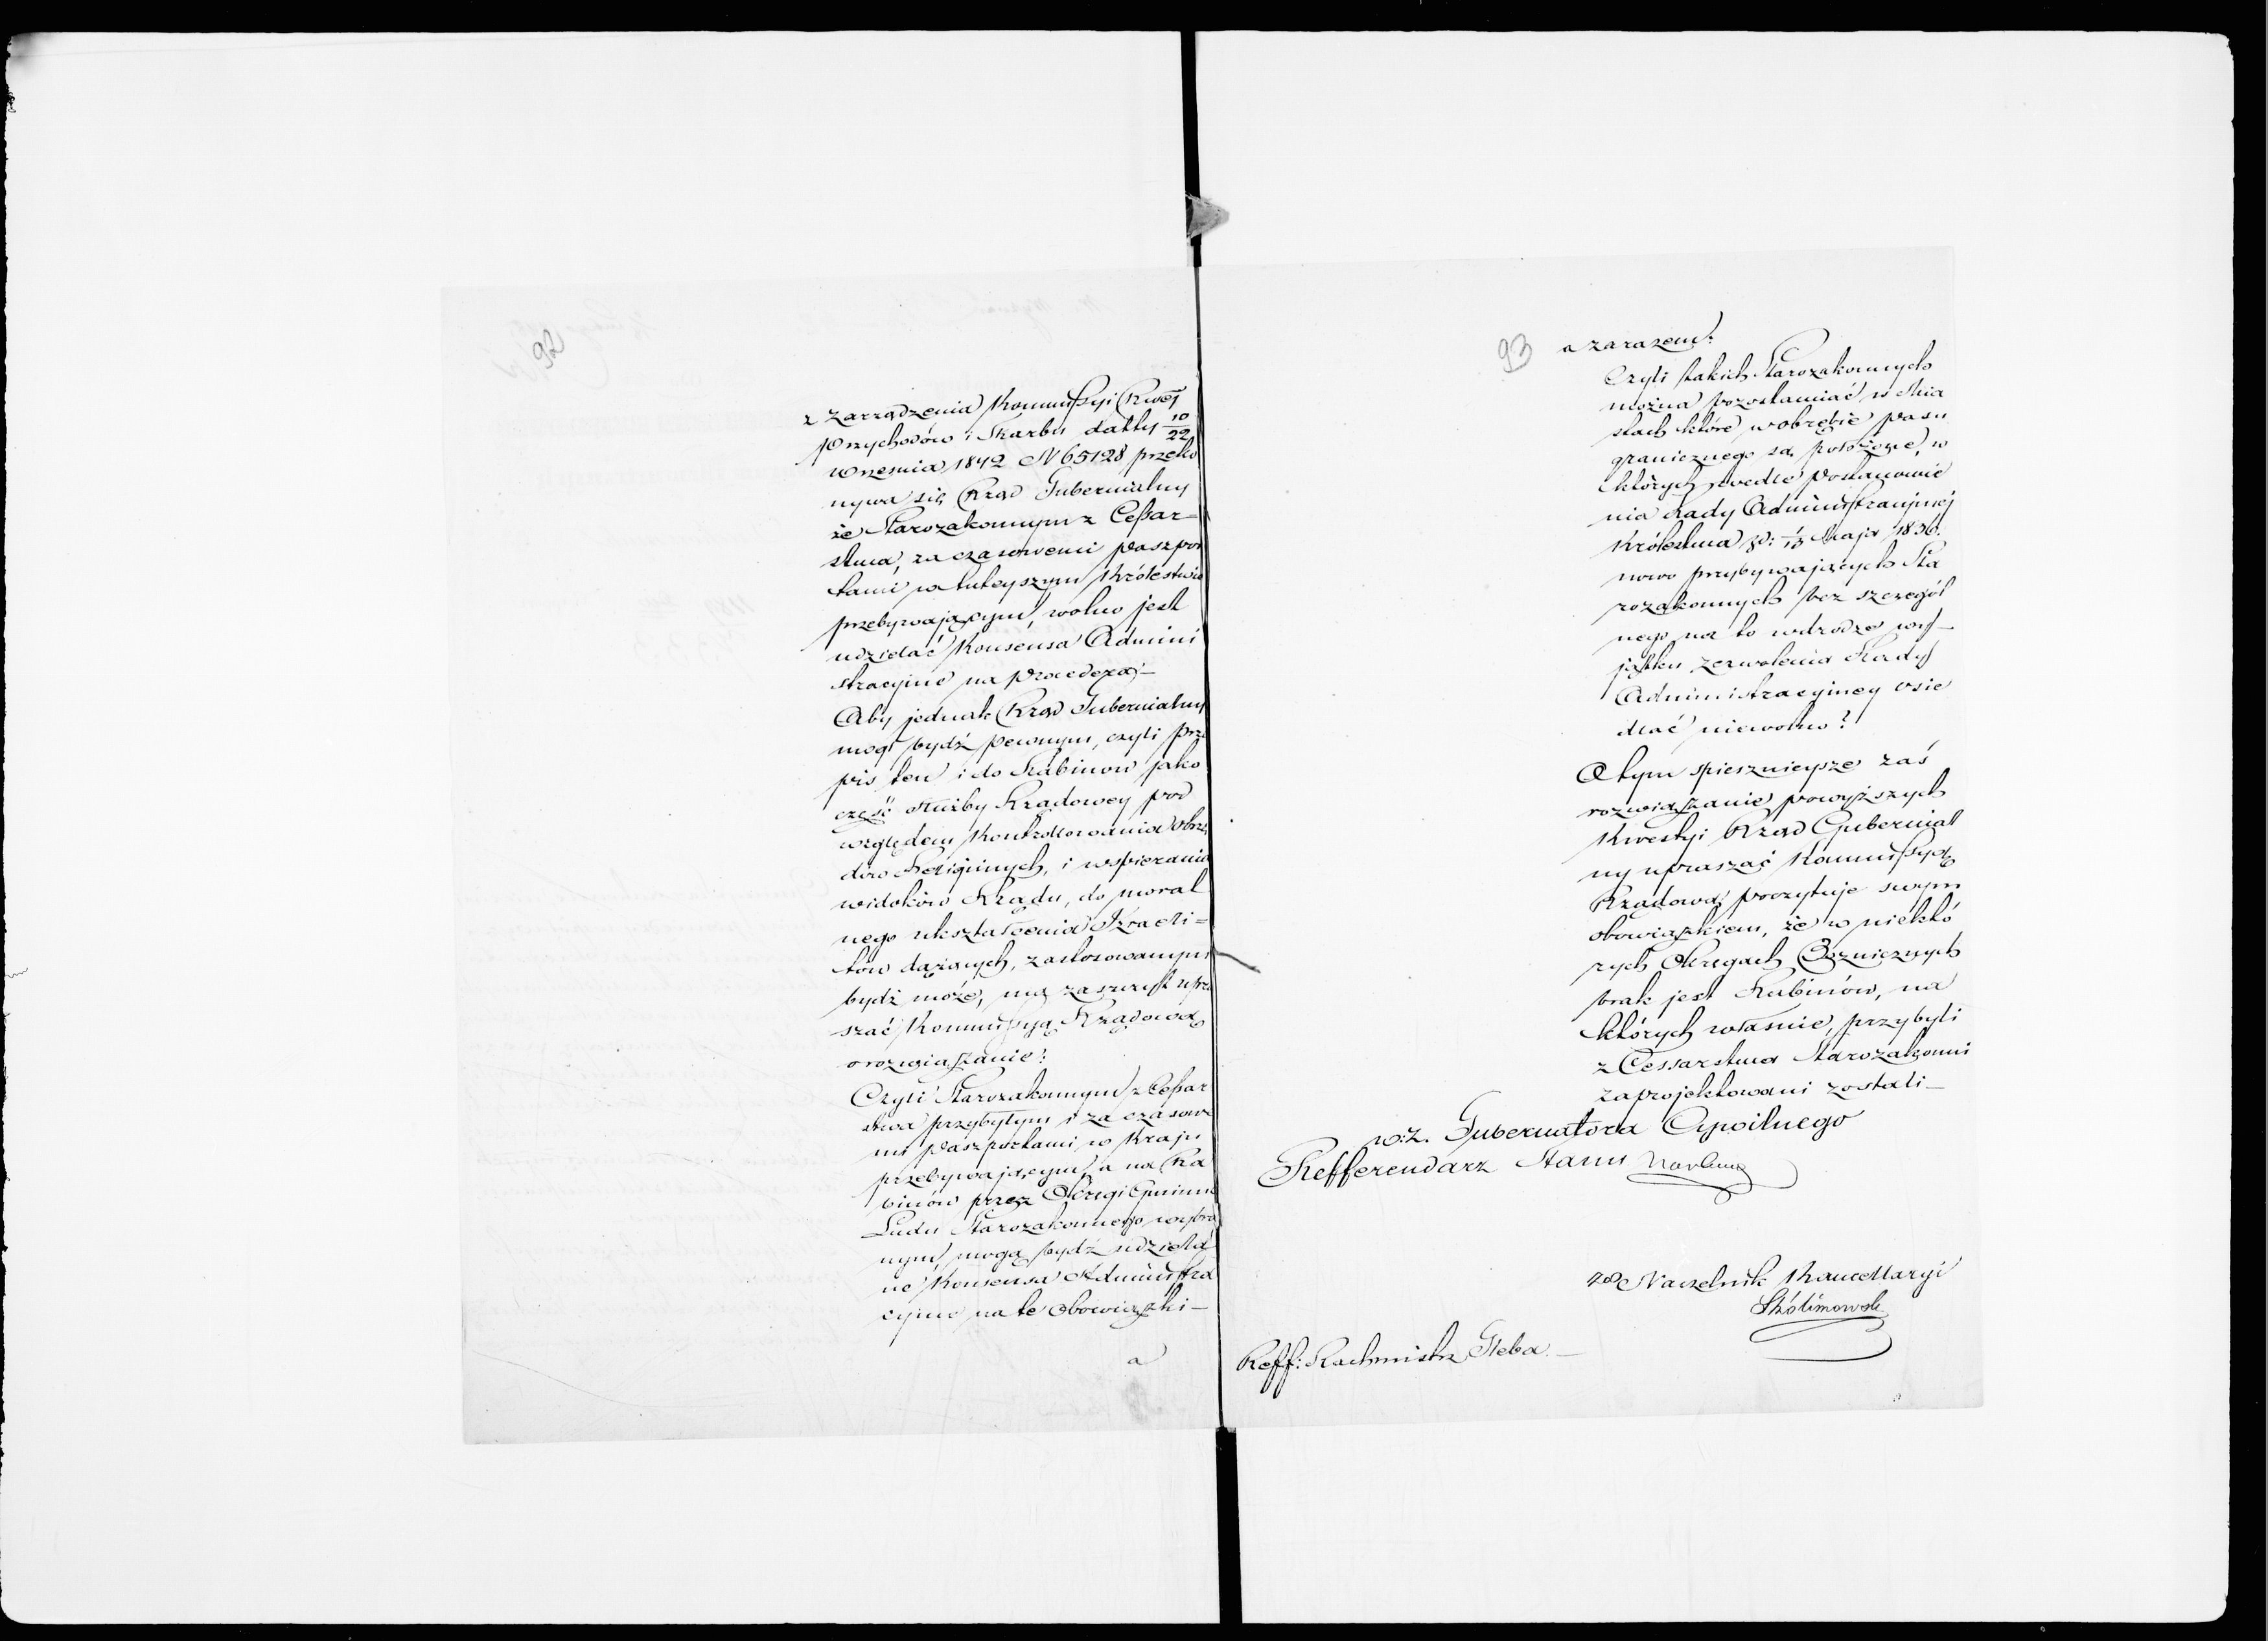 92
z zarządzenia Kommissyi Rwéj
Przychodów i Skarbu datty 10/22
Wrzesnia 1842 N 65128 przeko
nywa się Rząd Gubernialny
że Starozakonnym z Cessar=
stwa, za czasowemi paszpor
tami w tuteyszym Królestwie
przebywającym, wolno jest
udzielać Konsensa Admini
stracyine na Procedera;—
Aby jednak Rząd Gubernialny
mogł bydź pewnym, czyli prze
pis ten i do Rabinow jako
część służby Rządowey pod
względem Kontrollowania obrzę
dów Religiinych, i wspierania
widoków Rządu, do moral
nego ukształcenia Izraeli=
tów dążących, zastosowanym
bydź może, ma zaszczyt upra
szać Kommissyą Rządową
o rozwiązanie:
Czyli Starozakonnym z Cessar
stwa przybyłym i za czasowe
mi paszportami w Kraju
przebywającym, a na Ra
binów przez Okręgi Gminne
Ludu Starozakonnego wybra
nym, mogą bydź udziela
ne Konsensa Administra
cyine na te obowiązki—
a
93
a zarazem:
Czyli takich Starozakonnych
można pozostawiać w Mia
stach które w obrębie pasu
granicznego są położone, w
których wedle Postanowie
nia Rady Administracyjnej
Królestwa Maja 1836.
nowo przybywających Sta
rozakonnych bez szczegól
nego na to w drodze wy—
jątku zezwolenia Rady
Administracyiney osie
dlać niewolno?
O tym spiesznieysze zaś
rozwiązanie powyższych
Kwestyi Rząd Gubernial
ny upraszać Kommissyą
Rządową poczytuje swym
obowiązkiem, że w niektó
rych Okręgach Bożnicznych
brak jest Rabinów, na
których właśnie, przybyli
z Cessarstwa Starozakonni
zaprojektowani zostali—
w.z. Gubernatora Cywilnego
Refferendarz Stanu
Naczelnik Kancellaryi
Skólimowski
Reff: Rachmistrz Gleba.—